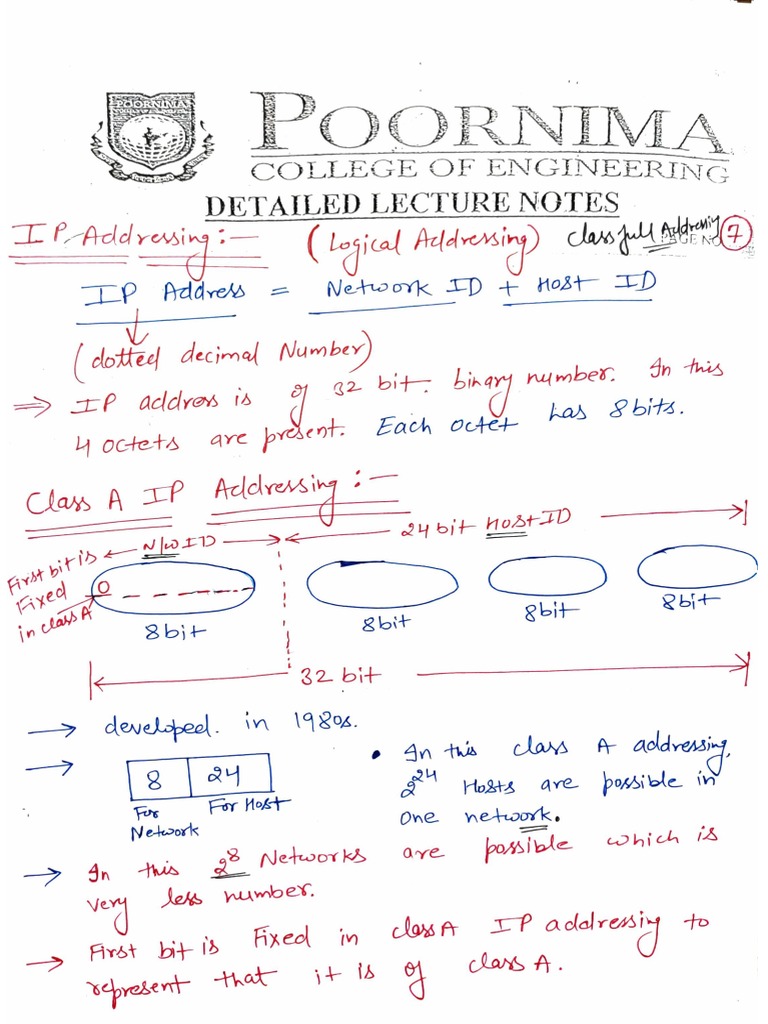 POORNIMA
POORNIMA
COLLEGE OF ENGINEERING
DETAILED LECTURE NOTES
IP Addressing:- (Logical Addressing) Classfull Addressing
PAGE NO. 7
IP Address = Network ID + Host ID
(dotted decimal Number)
⇒ IP address is of 32 bit. binary number. In this
4 octets are present. Each octet has 8bits.
Class A IP Addressing:-
First bit is ← N/W ID → ← 24 bit Host ID →
Fixed
in class A
0
8bit 8bit 8bit 8bit
32 bit
→ developed. in 1980s.
→ 8 24
For Network For Host
• In this class A addressing,
2^24 Hosts are possible in
one network.
→ In this 2^8 Networks are possible which is
very less number.
→ First bit is Fixed in class A IP addressing to
represent that it is of class A.